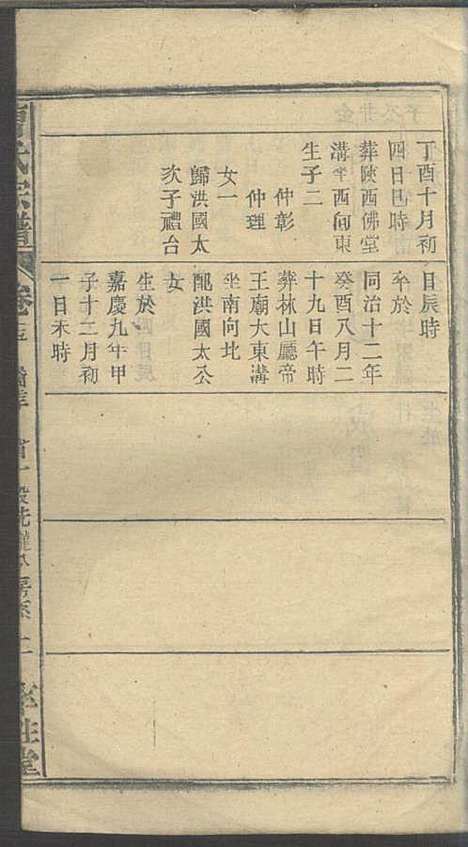 丁酉十月初
四日巳時
葬陝西佛堂
溝坐西向東
生子二
仲彰
仲理
女一
歸洪國太
次子禮台
日辰時
卒於
同治十二年
癸酉八月二
十九日午時
葬林山廳帝
王廟大東溝
坐南向北
配洪國太公
女
生於
嘉慶九年甲
子十二月初
一日未時
氏宗譜
卷